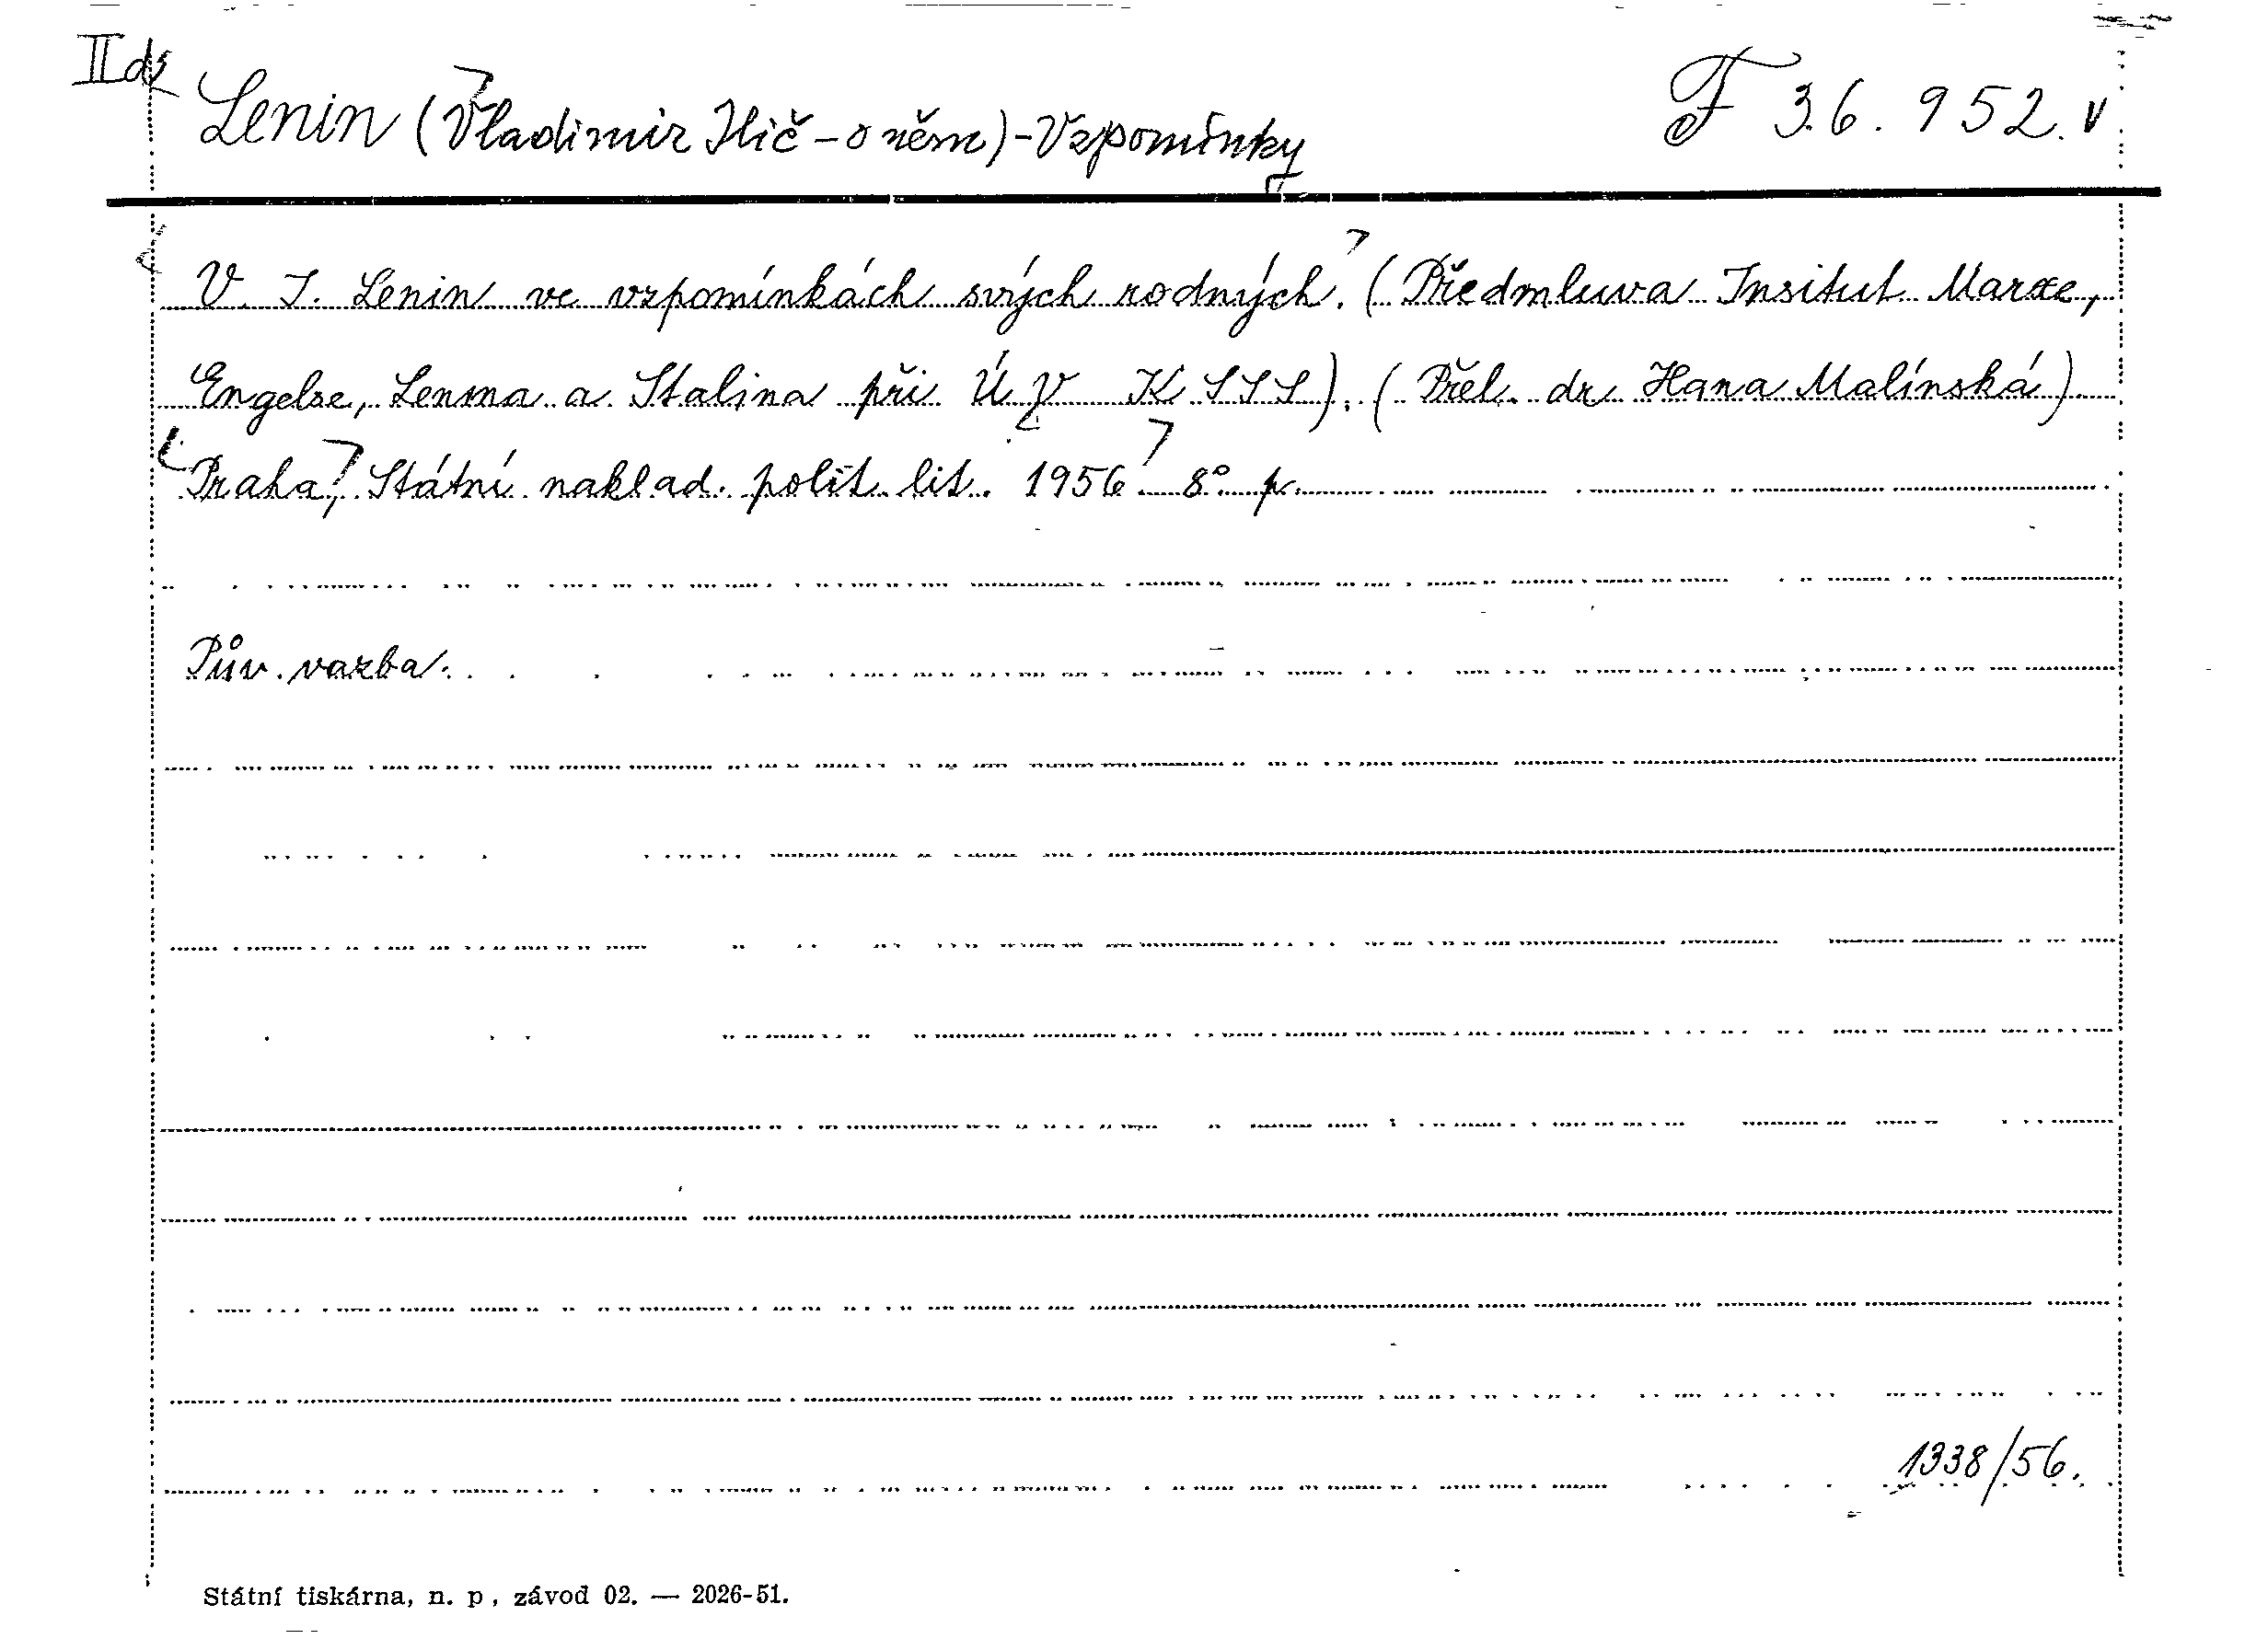 II d
Lenin (Vladimir Iljič - o něm) - Vzpomínky
F 36.952.
V. I. Lenin ve vzpomínkách svých rodných. (Předmluva Insitut Marxe,
Engelse, Lenina a Stalina při ÚV KSSS). (Přel. dr Hana Malínská)
Praha, Státní naklad. polit. lit. 1956 8° p.
Pův. vazba.
1338/56.
Státní tiskárna, n. p, závod 02. — 2026-51.